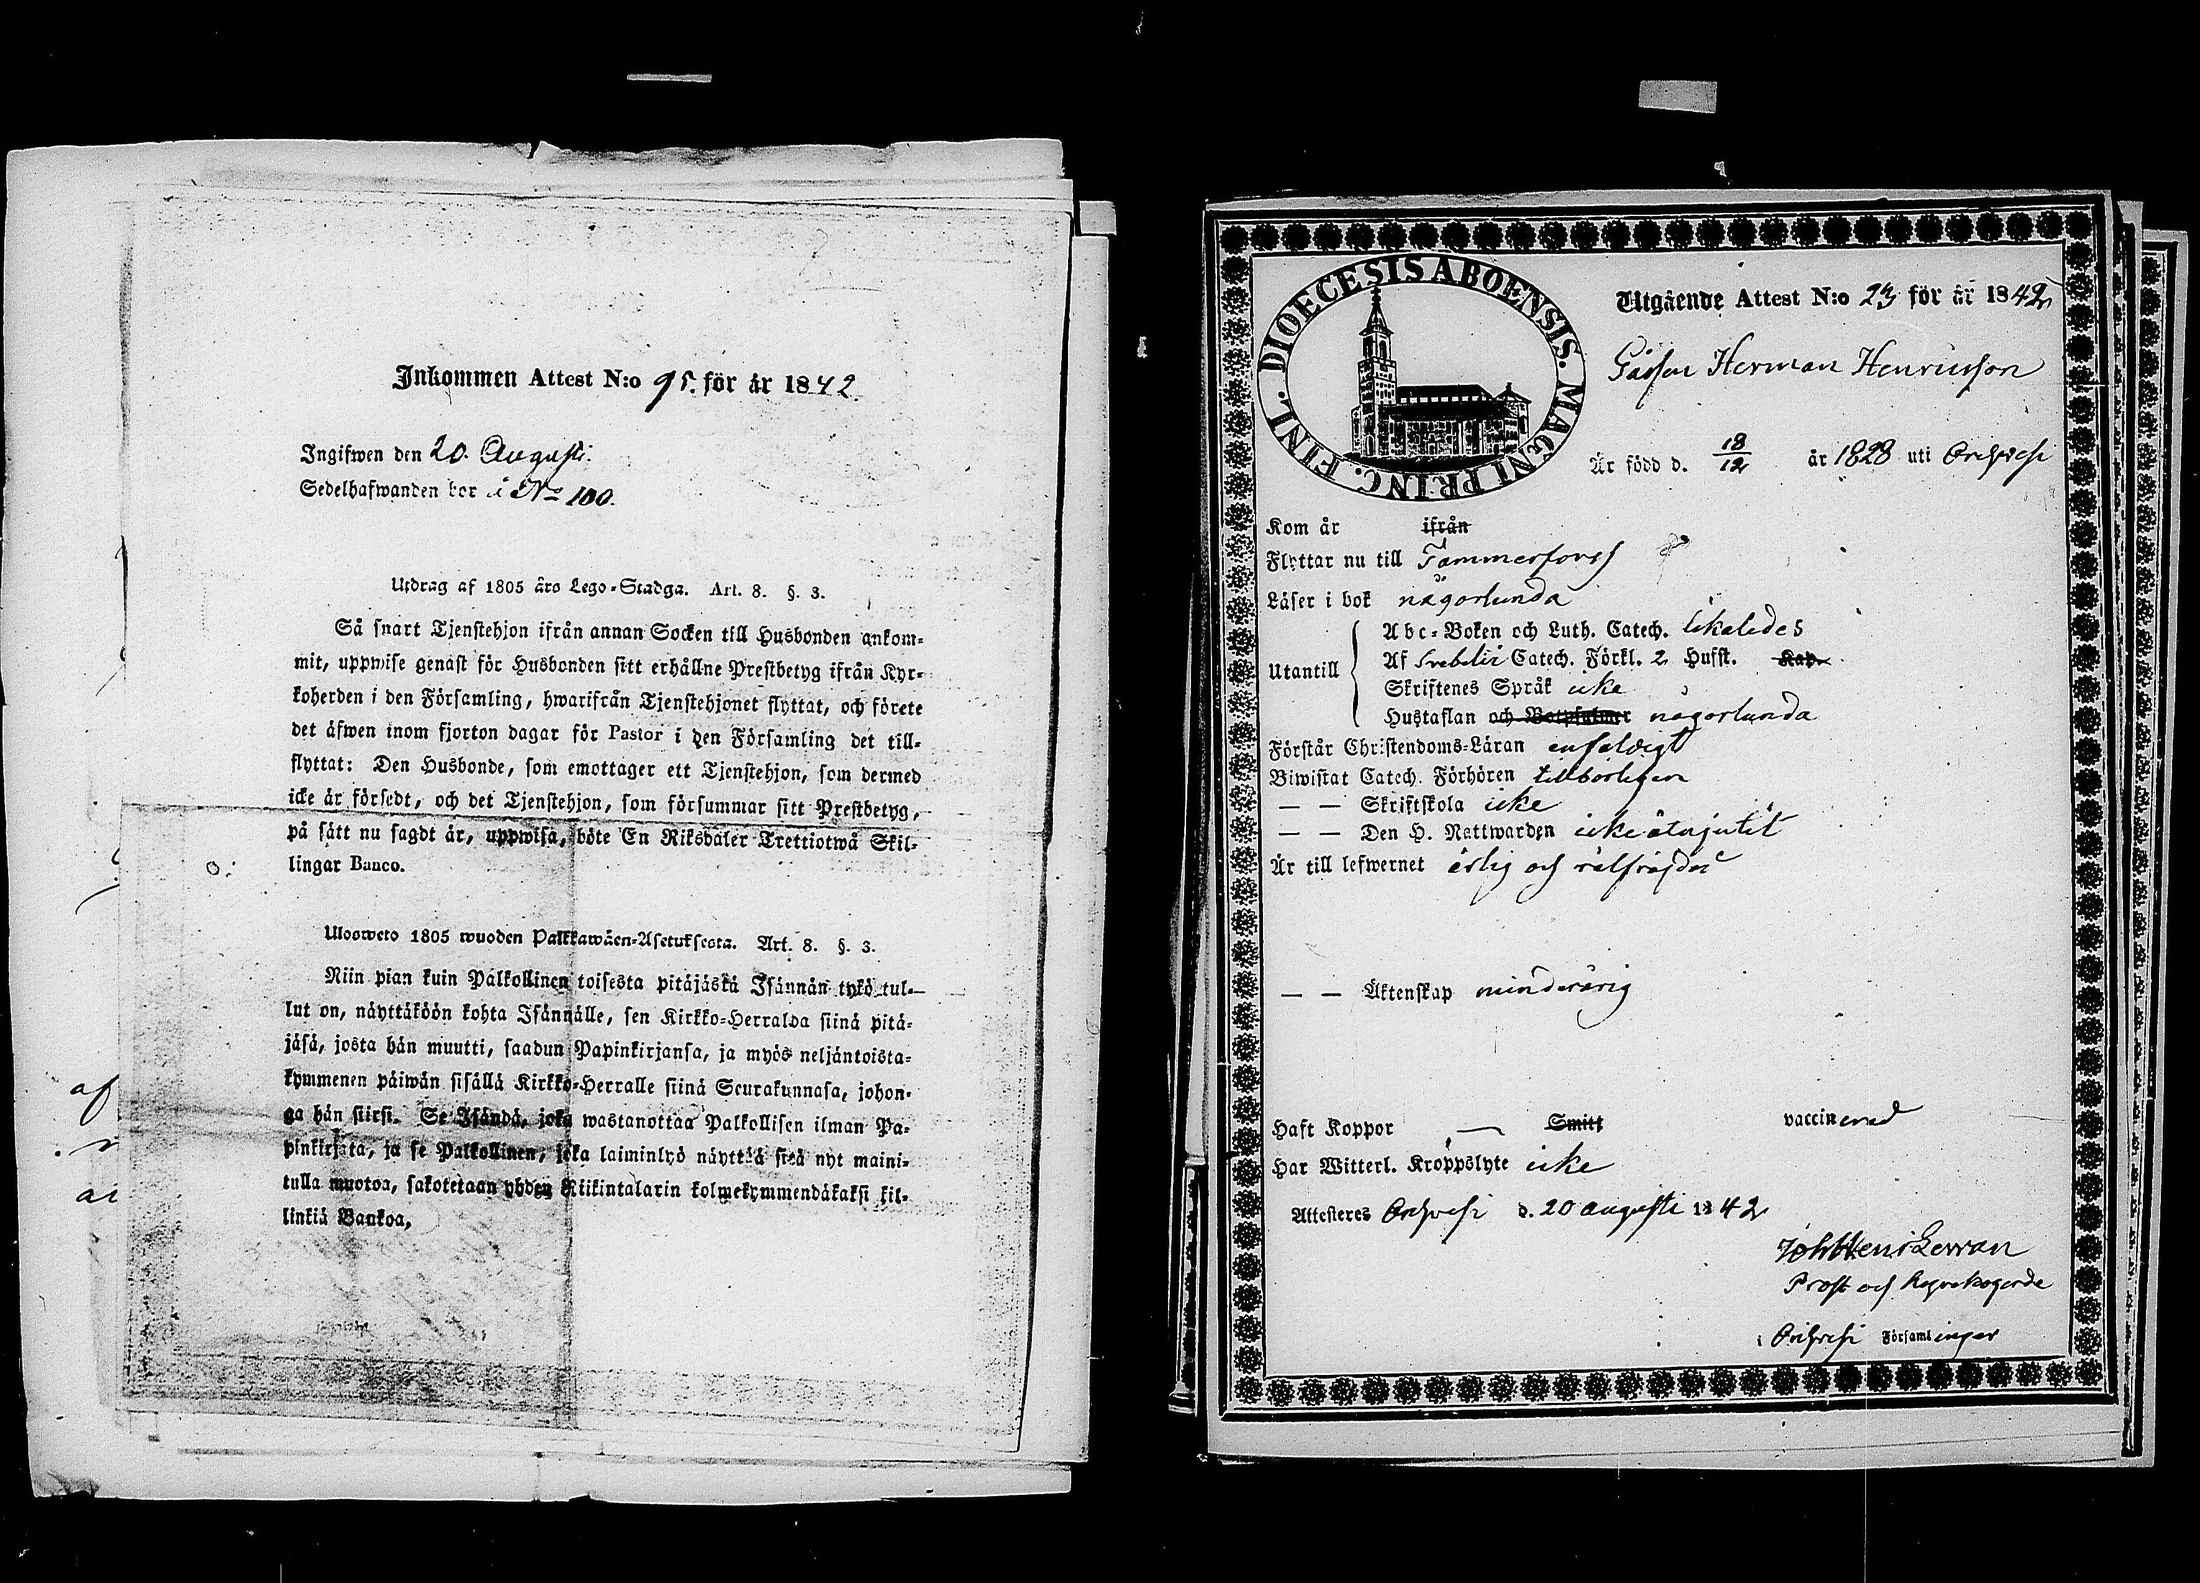 Inkommen Attest N:o 95. för år 1842.
Ingifwen den 20. Augusti.
Sedelhafwanden bor i No 100.
Utdrag af 1805 års Lego-Stadga. Art. 8. §. 3.
Så snart Tjenstehjon ifrån annan Socken till Husbonden ankom-
mit, uppwise genast för Husbonden sitt erhållne Prestbetyg ifrån Kyr-
koherden i den Församling, hwarifrån Tjenstehjonet flyttat, och förete
det äfwen inom fjorton dagar för Pastor i den Församling det till-
flyttat: Den Husbonde, som emottager ett Tjenstehjon, som dermed
icke är försedt, och det Tjenstehjon, som försummar sitt Prestbetyg,
på sätt nu sagdt är, uppwisa, böte En Riksdaler Trettiotwå Skil-
lingar Banco.
Ulosweto 1805 wuoden Palkkawäen-Asetuksesta. Art. 8. §. 3.
Niin pian kuin Palkollinen toisesta pitäjästä Isännän tykö tul-
lut on, näyttäköön kohta Isännälle, sen Kirkko-Herralda siinä pitä-
jäsä, josta hän muutti, saadun Papinkirjansa, ja myös neljäntoista-
kymmenen päiwän sisällä Kirkko-Herralle siinä Seurakunnasa, johon-
ga hän siirsi. Se Isändä, joka wastanottaa Palkollisen ilman Pa-
pinkirjata, ja se Palkollinen, joka laiminlyö näyttää sitä nyt maini-
tulla muotoa, sakotetaan yhden Riikintalarin kolmekymmendäkaksi kil-
linkiä Bankoa,
af
DIOECESIS ABOENSIS. MAGNI PRINC. FINL.
Utgående Attest N:o 23 för år 1842
Gåssen Herman Henricsson
Är född d. 18/12 år 1828 uti Orihvesi
Kom år ifrån
Flyttar nu till Tammerfors
Läser i bok någorlunda
Utantill
Abc-Boken och Luth. Catech. likaledes
Af Svebelii Catech. Förkl. 2 Hufst. Kap.
Skriftenes Språk icke
Hustaflan och Botpsalmer någorlunda
Förstår Christendoms-Läran enfaldigt
Biwistat Catech. Förhören tillbörligen
— — Skriftskola icke
— — Den H. Nattwarden icke åtnjutit
Är till lefwernet ärlig och välfräjdad
— — Äktenskap minderårig
Haft Koppor — Smitt vaccinerad
Har Witterl. Kroppslyte icke
Attesteres Orihvesi d. 20 augusti 1842
Prost och Kyrkoherde
i Orihvesi Församlingar